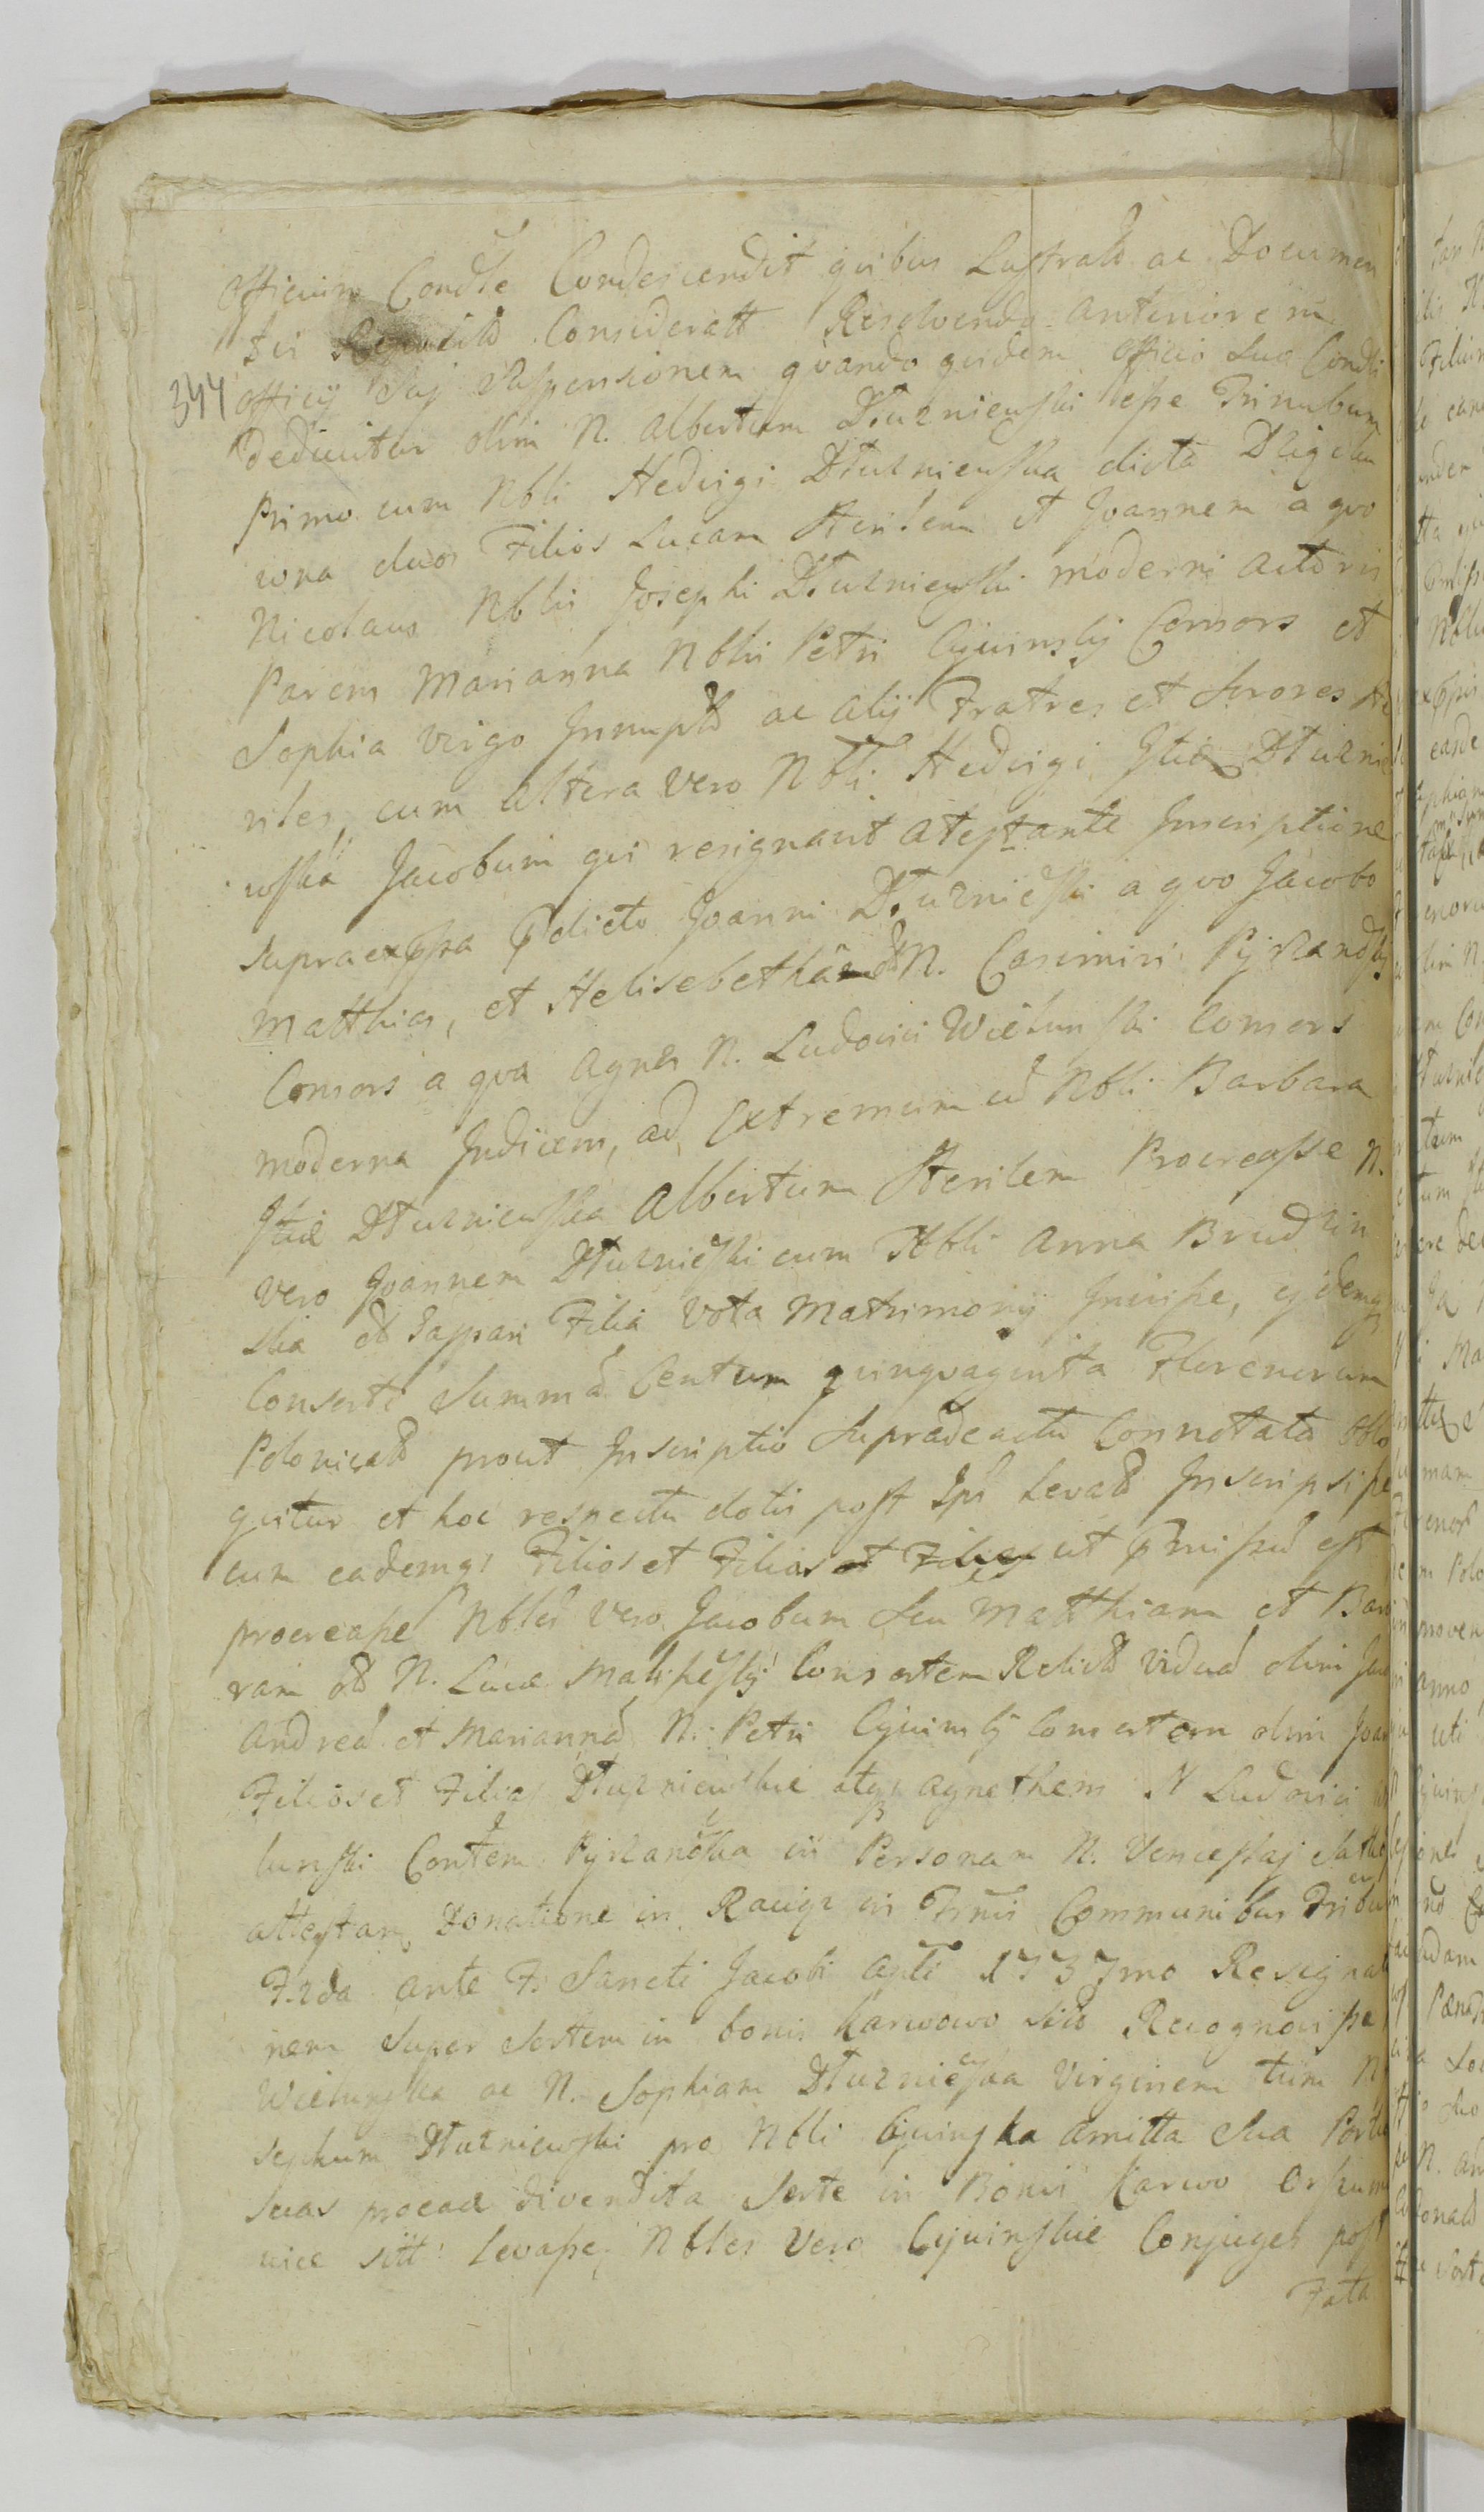 Officium Condle Condescendit quibus Lustratis ac Documen
tis Consideratt Resolvendo anteriorem
344
officij Suj Suspensionem quando quidem officio Suo Condli
deducitur olim N. Albertum Dłuzniewski esse Trinubum
Primo cum Nbli Hedvigi Dłuzniewska dicta
wna duos Filios Lucam Sterilem et Joannem a quo
Nicolaus Nblis Josephi Dłuzniewski moderni actoris
Parens Marianna Nblis Petri Cywinskj Consors et
Sophia Virgo Innupta ac alij Fratres et Sorores Ste
riles, cum altera vero Nbli Hedvigi Dłuznie
wska Jacobum qui resignavit atestante Inscriptione
supraexpssa pdicto Joanni Dłuznieski a quo Jacobo
Matthias, et Helisebetha N. Casimiri Pyrzanoskj
Consors a qua Agnes N. Ludovici Wielunski Consors
moderna Judicem, ad Extremum cu Nbli Barbara
Dłuzniewska Albertum Sterilem Procreasse N.
vero Joannem Dłuznieski cum Nbli Anna Brudzin
ska olim Gaspari Filia Vota Matrimonij Inivisse, ejdemqz
Conserti Summa Centum quinquaginta Florenorum
Polonicalium prout Inscriptio Supradeactu Connotata
quitur et hoc respectu dotis post Ipsa levata Inscripsisse
cum eademqz Filios et Filias et Filias ut pmissu est
procreasse Nbles vero Jacobum Seu Matthiam et Barb
ram N. Luca Consortem Relicta vidua olim
Andrea et Marianna N. Petri Cywinskj Consortem olim Joan
Filios et Filias Dłuzniewskie atqz Agnethem N Ludovici
lunski Contem Pyrzanoska in Personam N. Venceslaj
attestan Donatione in Raciqz in Trnis Communibus
F. 2da ante F. Sancti Jacobi Anti 1737mo Resignat
nem super Sortem in bonis Karwowo Recognovisse
Wielunska ac N. Sophiam Dłuznieska Virginem tum N
sephum Dłuzniewski pro Nbli Cywinska amitta Sua
suas procae divendita Sorte in Bonis Karwo
wice sitt: levasse, Nbles vero Cywinskie Conjuges post
Fata